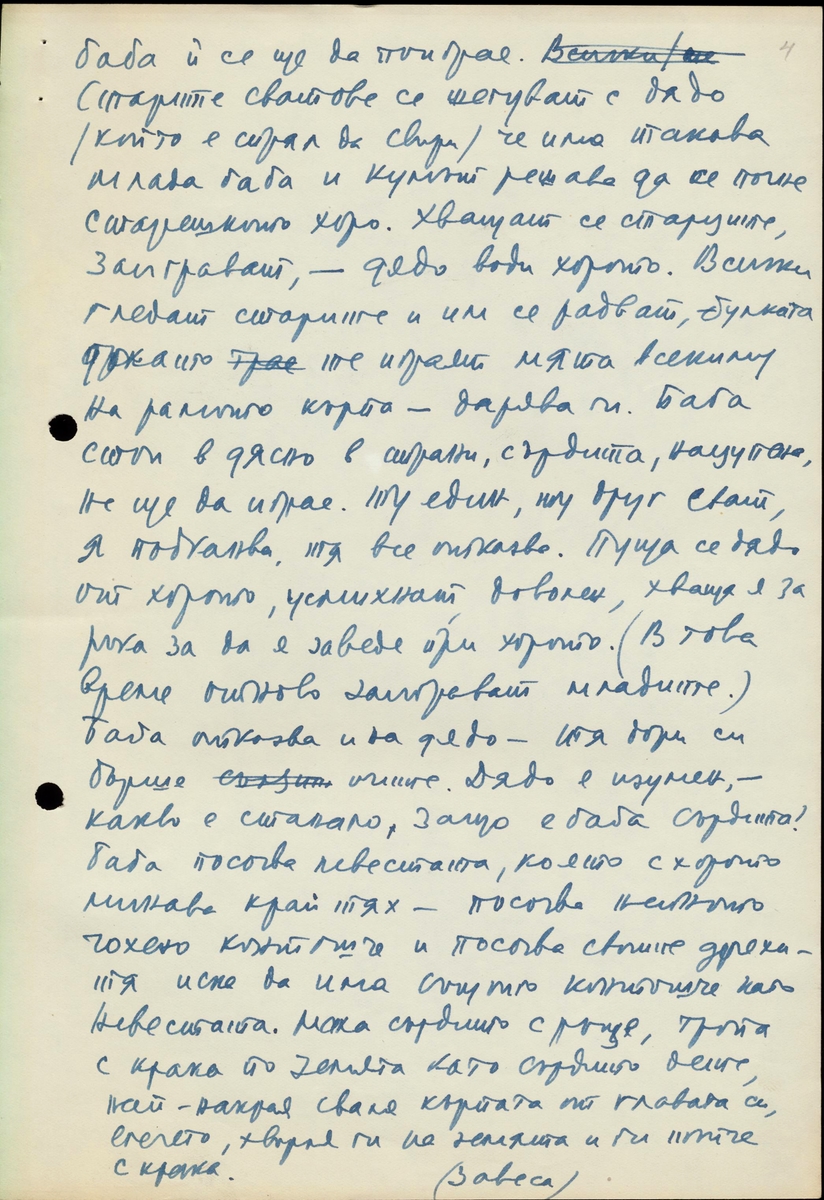 4
баба й се ще да поиграе. Всички/не
Старите сватове се шегуват с дядо
/който е спрял да свири/ че има такава
млада баба и кумът решава да се почне
старешкото хоро. Хващат се старците,
заиграват, — дядо води хорото. Всички
гледат старците и им се радват, булката
докато те играят мята всекиму
на рамото кърпа — дарява ги. Баба
стои в дясно в страни, сърдита, нацупена,
не ще да играе. Ту един, ту друг сват,
я подканва, тя все отказва. Пуща се дядо
от хорото, усмихнат, доволен, хваща я за
ръка за да я заведе при хорото. (В това
време отново заиграват младите.)
Баба отказва и на дядо — тя дори си
бърше очите. Дядо е изумен, —
какво е станало, защо е баба сърдита?
Баба посочва невестата, която с хорото
минава край тях — посочва нейното
чохено контошче и посочва своите дрехи —
тя иска да има същото контошче като
невестата. Маха сърдито с ръце, тропа
с крака по земята като сърдито дете,
най-накрая сваля кърпата от главата си,
елечето, хвърля ги на земята и ги тъпче
с крака.
(Завеса)